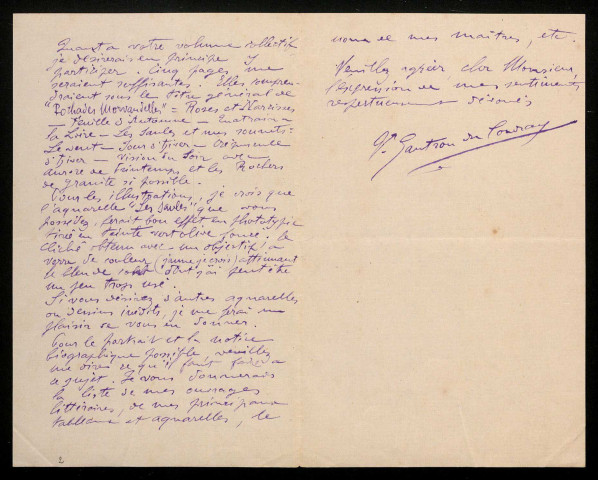 Quant a votre volume collectif
je désirerais en principe y
participer. Cinq pages me
seraient suffisantes. Elles
sous le titre général de
"Pochades Morvandelles" = Roses et Narcisses
— Feuille d'Automne — Quatrain —
la Loire — Les Saules et mes sonnets:
Le vent — Jour d'hiver — Crépuscule
d'hiver — Vision du Soir avec
Aurore de Printemps et les Rochers
de granite si possible.
Pour les illustrations, je crois que
l'aquarelle "Les Saules" que vous
possédez, ferait bon effet en phototypie
tirée en teinte vert olive foncé. le
cliché obtenu avec un objectif a
verre de couleur (jaune je crois) atténuant
le bleu de dont j'ai peut être
un peu trop usé.
Si vous désirez d'autres aquarelles
ou dessins inédits, je me ferai un
plaisir de vous en donner.
Pour le portrait et la notice
biographique possible, veuillez
me dire ce qu'il faut faire a
ce sujet. Je vous donnerais
la liste de mes ouvrages
littéraires, de mes principaux
tableaux et aquarelles, le
2
noms de mes maîtres, etc.
Veuillez agréer, cher Monsieur,
l'expression de mes sentiments
respectueusement dévoués
Gautron du Coudray